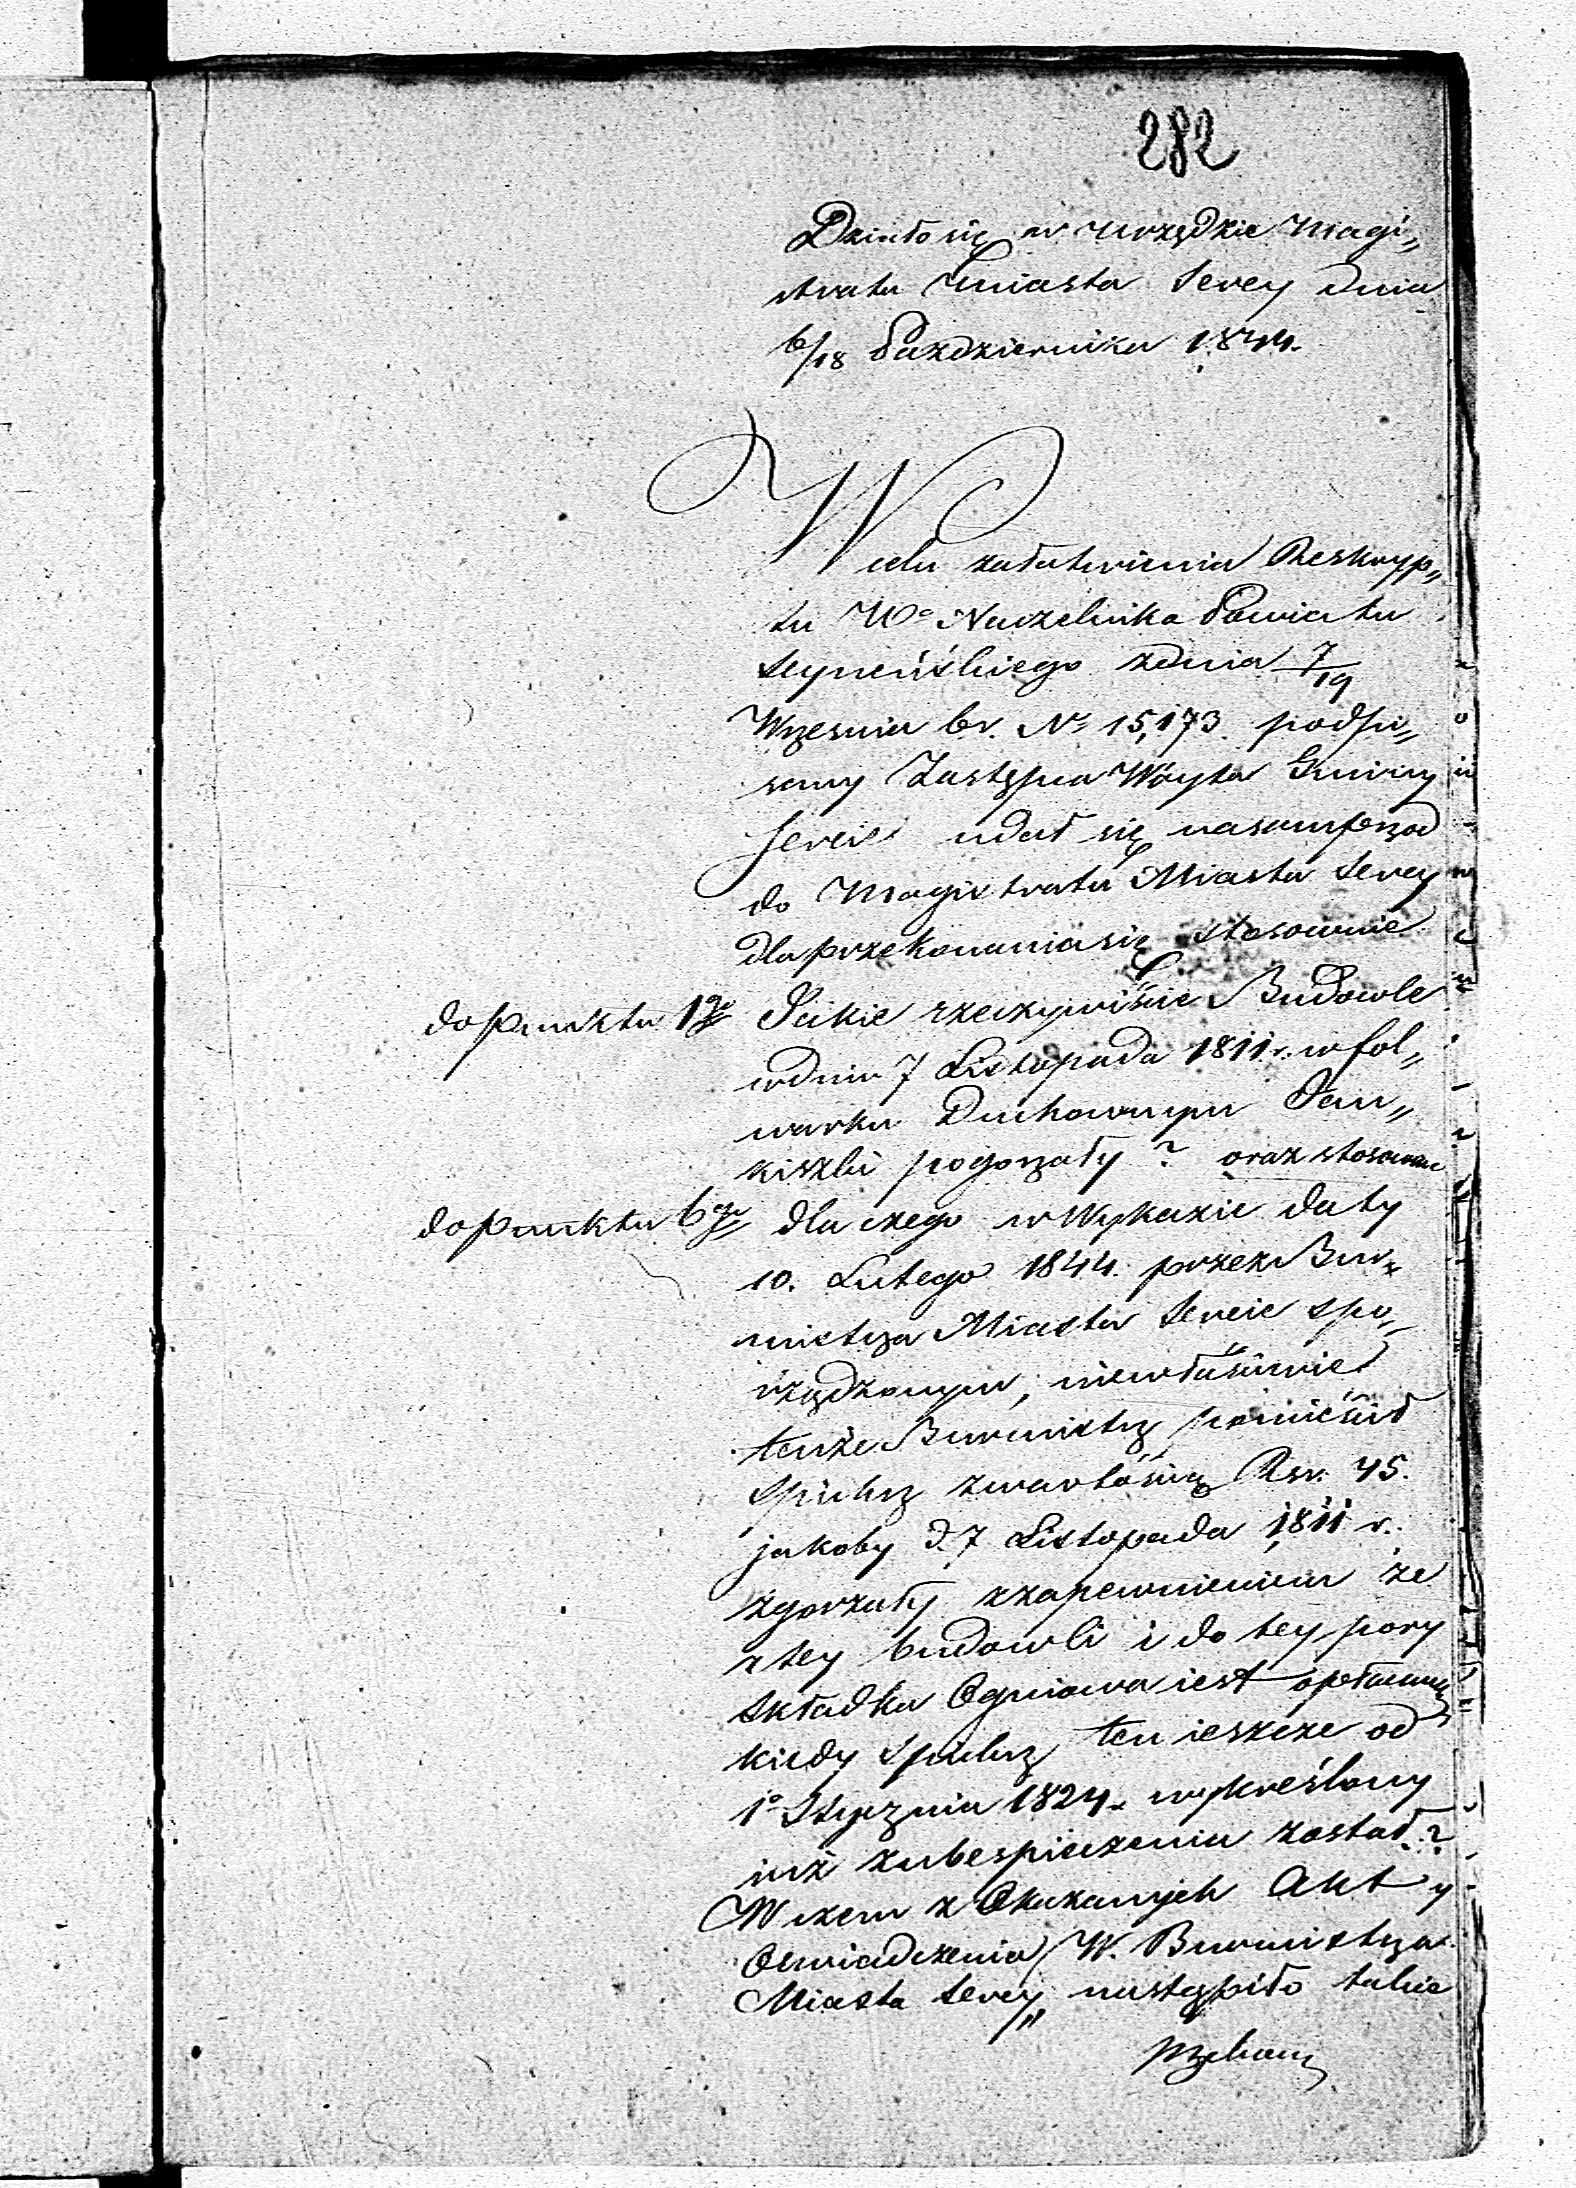 282
Działo się w Urzędzie Magi„
stratu Miasta Serey Dnia
6/18 Października 1844.
W celu załatwienia Reskryp„
tu Wo Naczelnika Powiatu
Seyneńskiego z dnia 7/19
Wrzesnia br. No 15,173. podpi„
sany Zastępca Wóyta Gminy
Sereie udał się nasamprzod
do Magistratu Miasta Serey
dla przekonania się stosownie
do punktu 1go Jakie rzeczywiście Budowle
w dniu 7 Listopada 1811 r. w fol„
warku Duchownym Jan„
kiszki pogorzały? oraz stosownie
do punktu 6go dla czego w Wykazie daty
10. Lutego 1844. przez Bur„
mistrza Miasta Sereie spo„
rządzonym, niewłaściwie
tenże Burmistrz pomieścił
Spichrz z wartością Rsr. 45.
jakoby d. 7 Listopada 1811 r.
zgorzały z zapewnieniem że
z tey budowli i do tey pory
Składka Ogniowa iest opłacaną
kiedy Spichrz ten ieszcze od
1o Stycznia 1824 r. wykreślony
iuż z ubespieczenia został?
W czem z Okazanych Akt y
Oswiadczenia W. Burmistrza
Miasta Serey„ nastąpiło takie